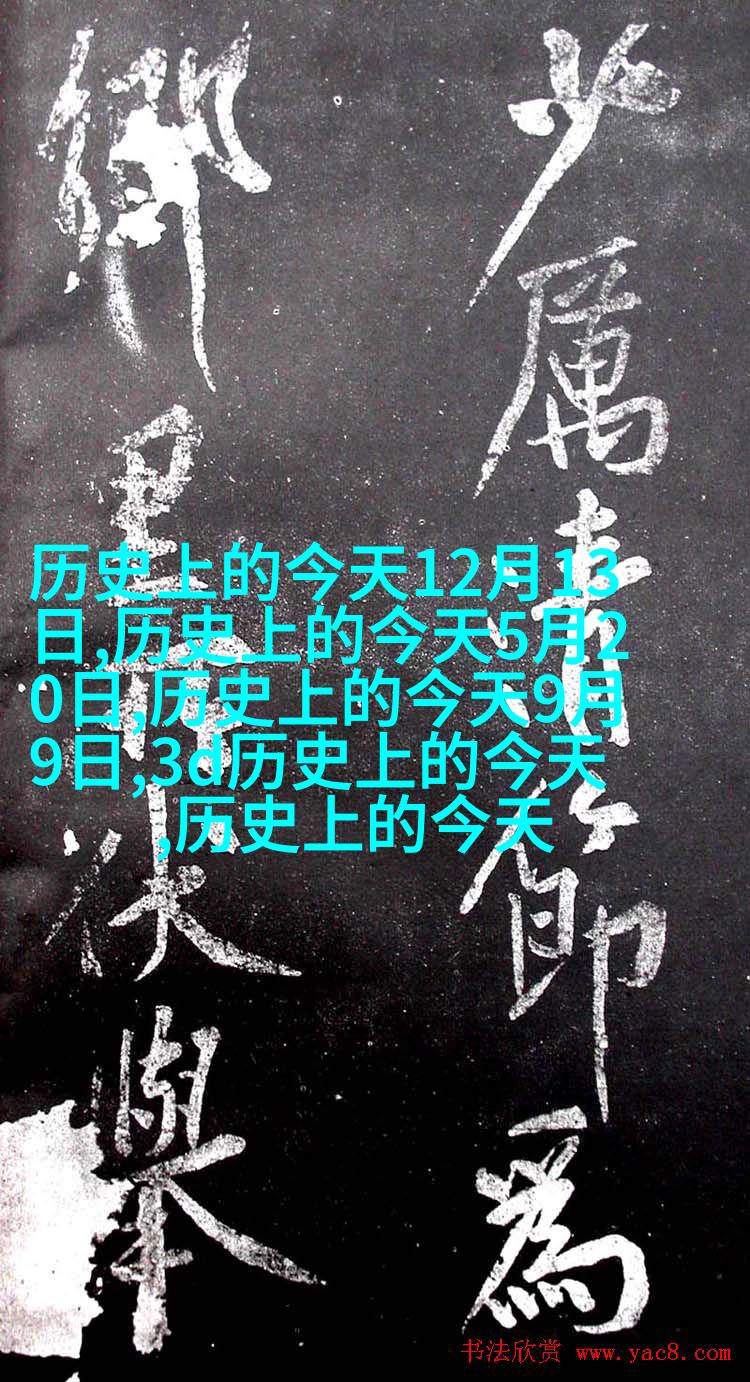 少厲清節為
鄉里所伏舉
历史上的今天12月13
日,历史上的今天5月2
0日,历史上的今天9月
9日,3d历史上的今天
,历史上的今天
书法欣赏 www.yac8.com